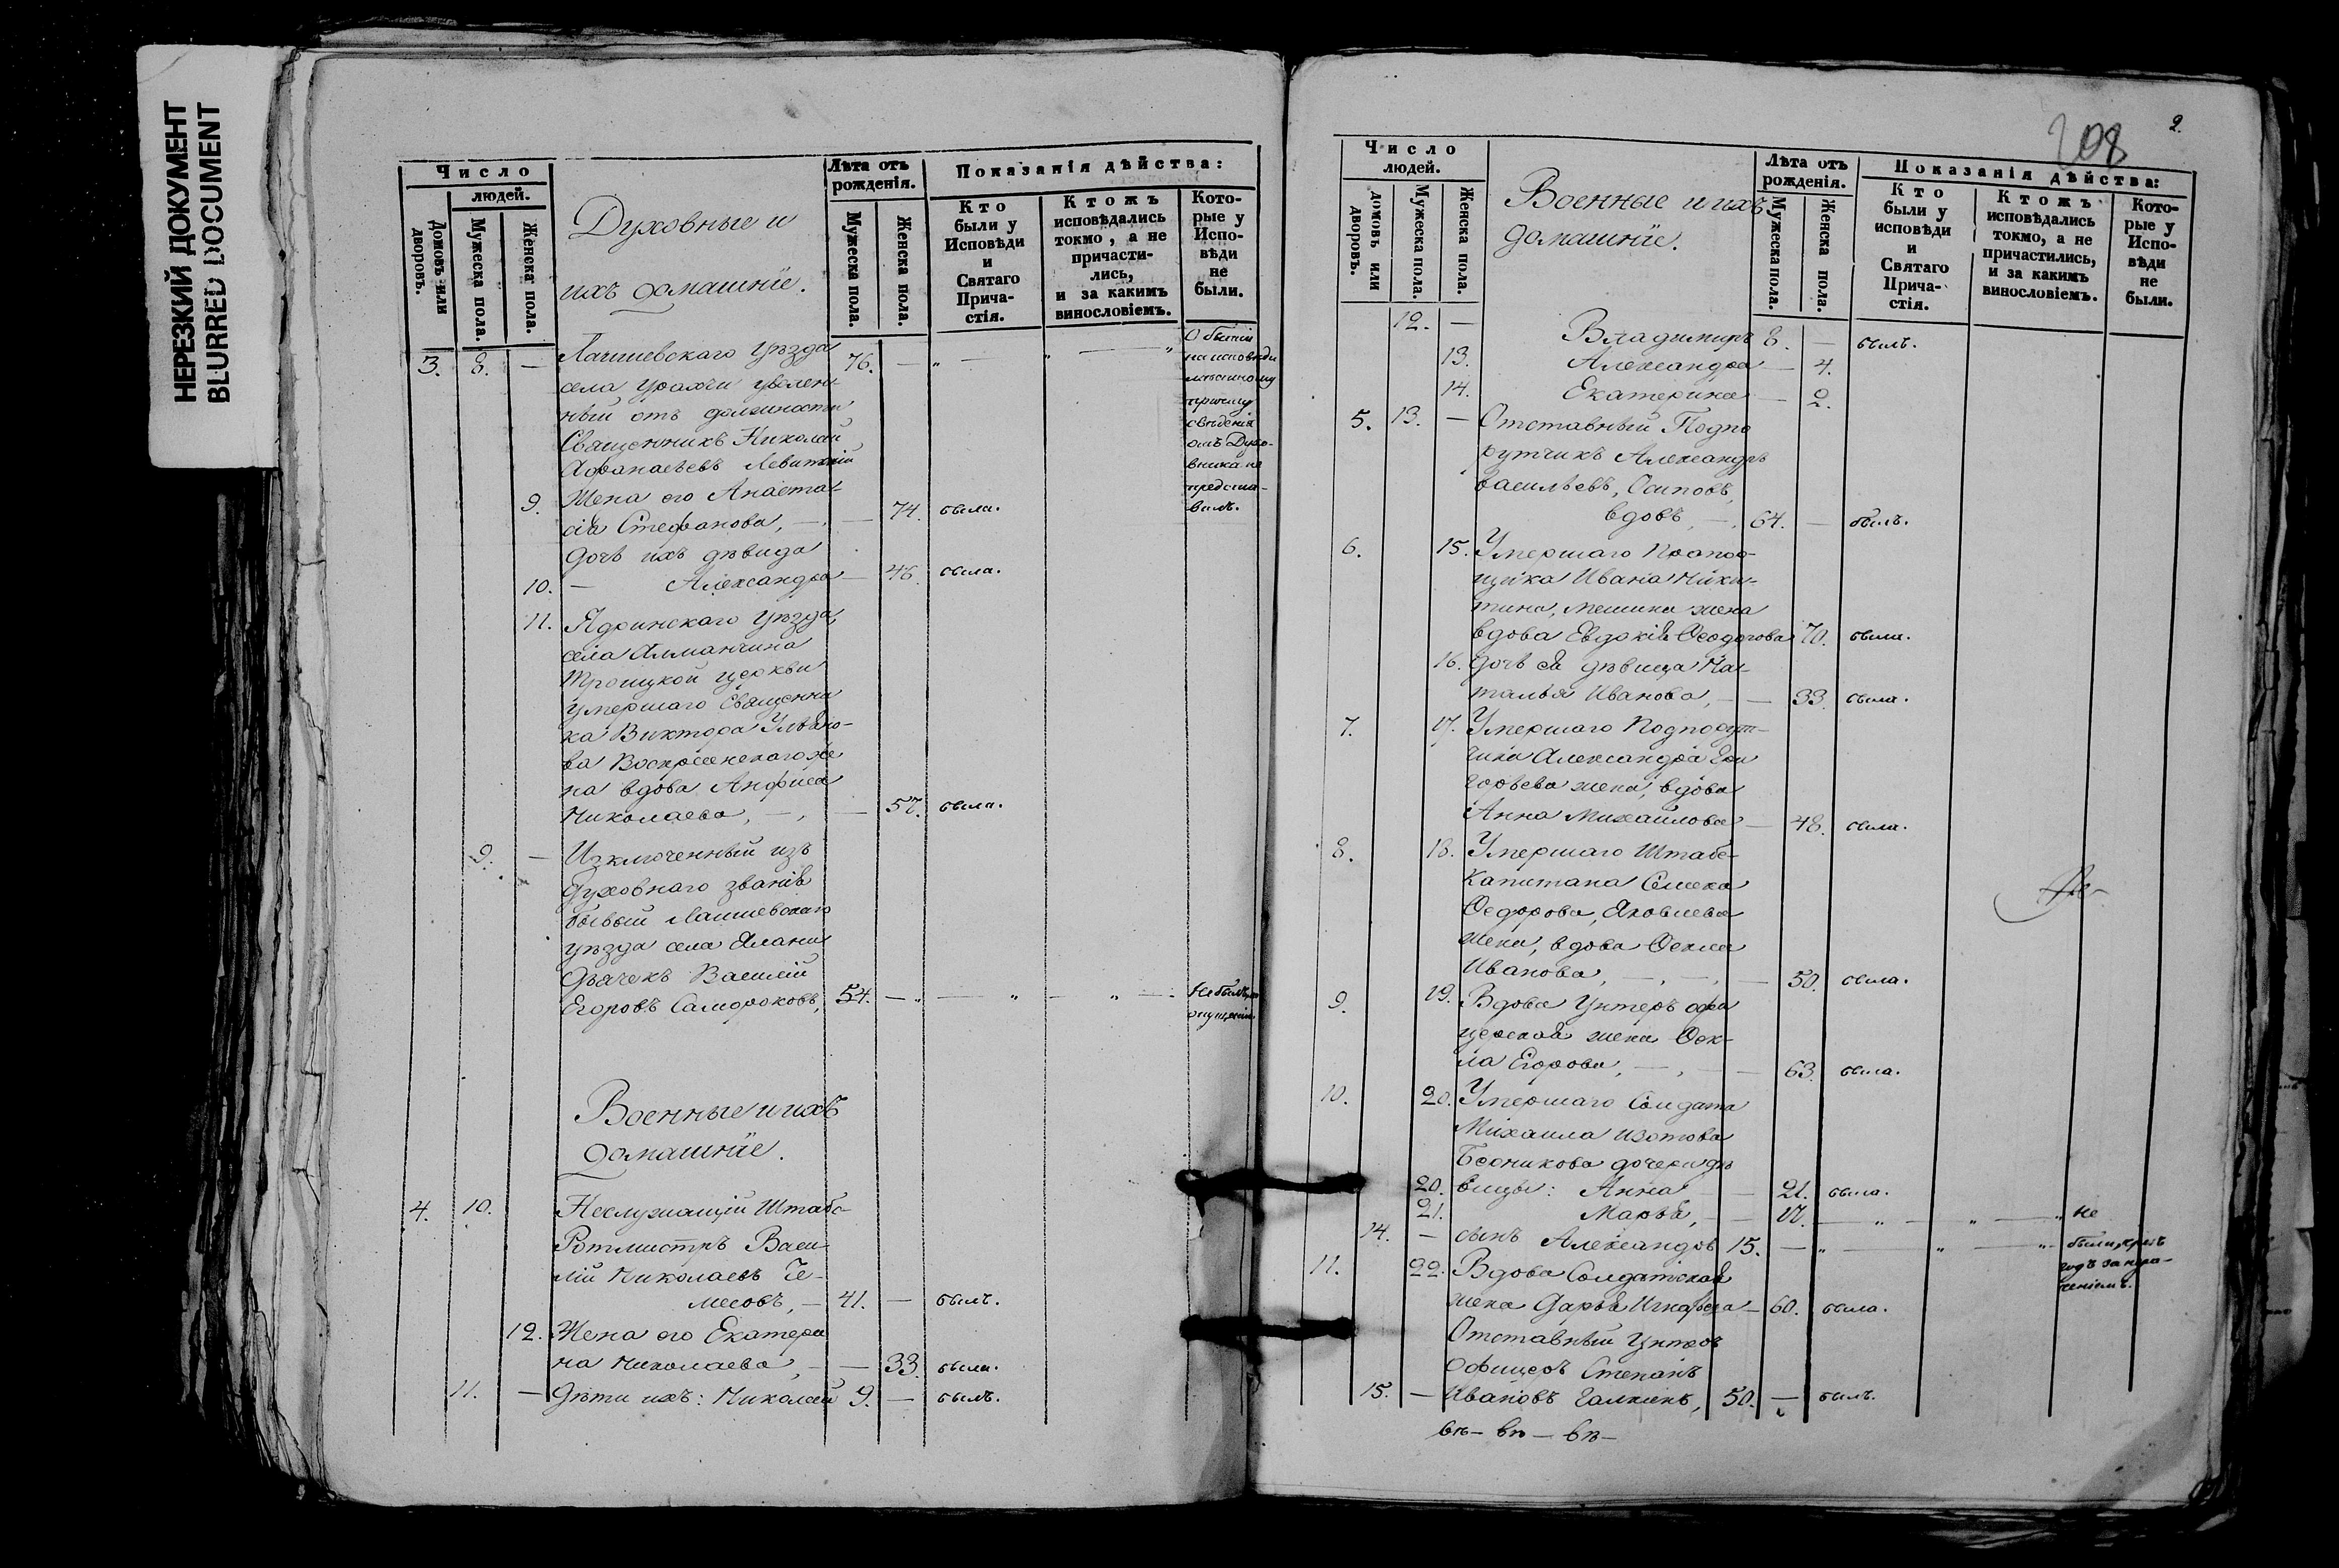 НЕРЕЗКИЙ ДОКУМЕНТ
BLURRED DOCUMENT
Число людей.
Домовъ или дворовъ.
Мужеска пола.
Женска пола.
Духовные и
ихъ домашніе.
Лѣта отъ рожденія.
Мужеска пола.
Женска пола.
Показанія дѣйства:
Кто были у Исповѣди и Святаго Прича-стія.
Ктожъ исповѣдались токмо, а не причасти-лись, и за какимъ винословіемъ.
Кото-рые у Испо-вѣди не были.
3. 8. — Лаишевскаго уѣзда 76. —
села Урахчи уволен-
ный отъ должности
Священникъ Николай
Афанасьевъ Левитскій
О бытіи
на исповѣди
причину
свѣденія
отъ Духо-
вника не
предста-
вилъ.
9. Жена его Анаста-
сія Стефанова, — 74. была.
Дочь ихъ дѣвица
10. — Александра — 46. была.
11. Ядринскаго уѣзда
села Алманчина
Троицкой церкви
умершаго Священни
ка Виктора Ульяно-
ва Воскресенскаго же
на вдова Анфиса
Николаева, — 57. была.
9. — Изключенный изъ
духовнаго званія
бывый Лаишевскаго
уѣзда села Алани
Дьячекъ Василій
Егоровъ Самороковъ, 54. — Не былъ по
опущенію.
Военные и ихъ
домашніе.
4. 10. Неслужащій Штабс-
Ротмистръ Васи-
лій Николаевъ Че-
месовъ, — 41. — былъ.
12. Жена его Екатери
на Николаева, — 33. была.
11. — Дѣти ихъ: Николай 9. — былъ.
208
2.
Число людей.
домовъ или дворовъ.
Мужеска пола.
Женска пола.
Военные и ихъ
домашніе.
Лѣта отъ рожденія.
Мужеска пола.
Женска пола.
Показанія дѣйства:
Кто были у исповѣди и Святаго Прича-стія.
Ктожъ исповѣдались токмо, а не причастились, и за какимъ винословіемъ.
Кото-рые у Испо-вѣди не были.
12. — Владимиръ 8. — былъ.
13. Александра — 4.
14. Екатерина — 2.
5. 13. — Отставный Подпо
рутчикъ Александръ
Васильевъ, Осиповъ,
вдовъ, — 64. — былъ.
6. 15. Умершаго Прапор-
щика Ивана Ники-
тина, жена
вдова Евдокія Ѳеодорова 70. была.
16. Дочь ея дѣвица На-
талья Иванова, — 33. была.
7. 17. Умершаго Подпорут-
чика Александра Гри
горьева жена, вдова
Анна Михайлова — 48. была.
8. 18. Умершаго Штабс-
Капитана
Ѳедорова, Яковлева
жена, вдова Ѳекла
Иванова, — 50. была.
9. 19. Вдова Унтеръ офи
церская жена Ѳек-
ла Егорова, — 63. была.
10. 20. Умершаго Солдата
Михаила Изотова
дочери дѣ
20. вицы: Анна — 21. была.
21. Марья, — 17. — не
14. — сынъ Александръ 15. — были,
годъ за
11. 22. Вдова Солдатская
жена Дарья — 60. была.
Отставный Унтеръ
Офицеръ Степанъ
15. — Ивановъ Галкинъ, 50. — былъ.